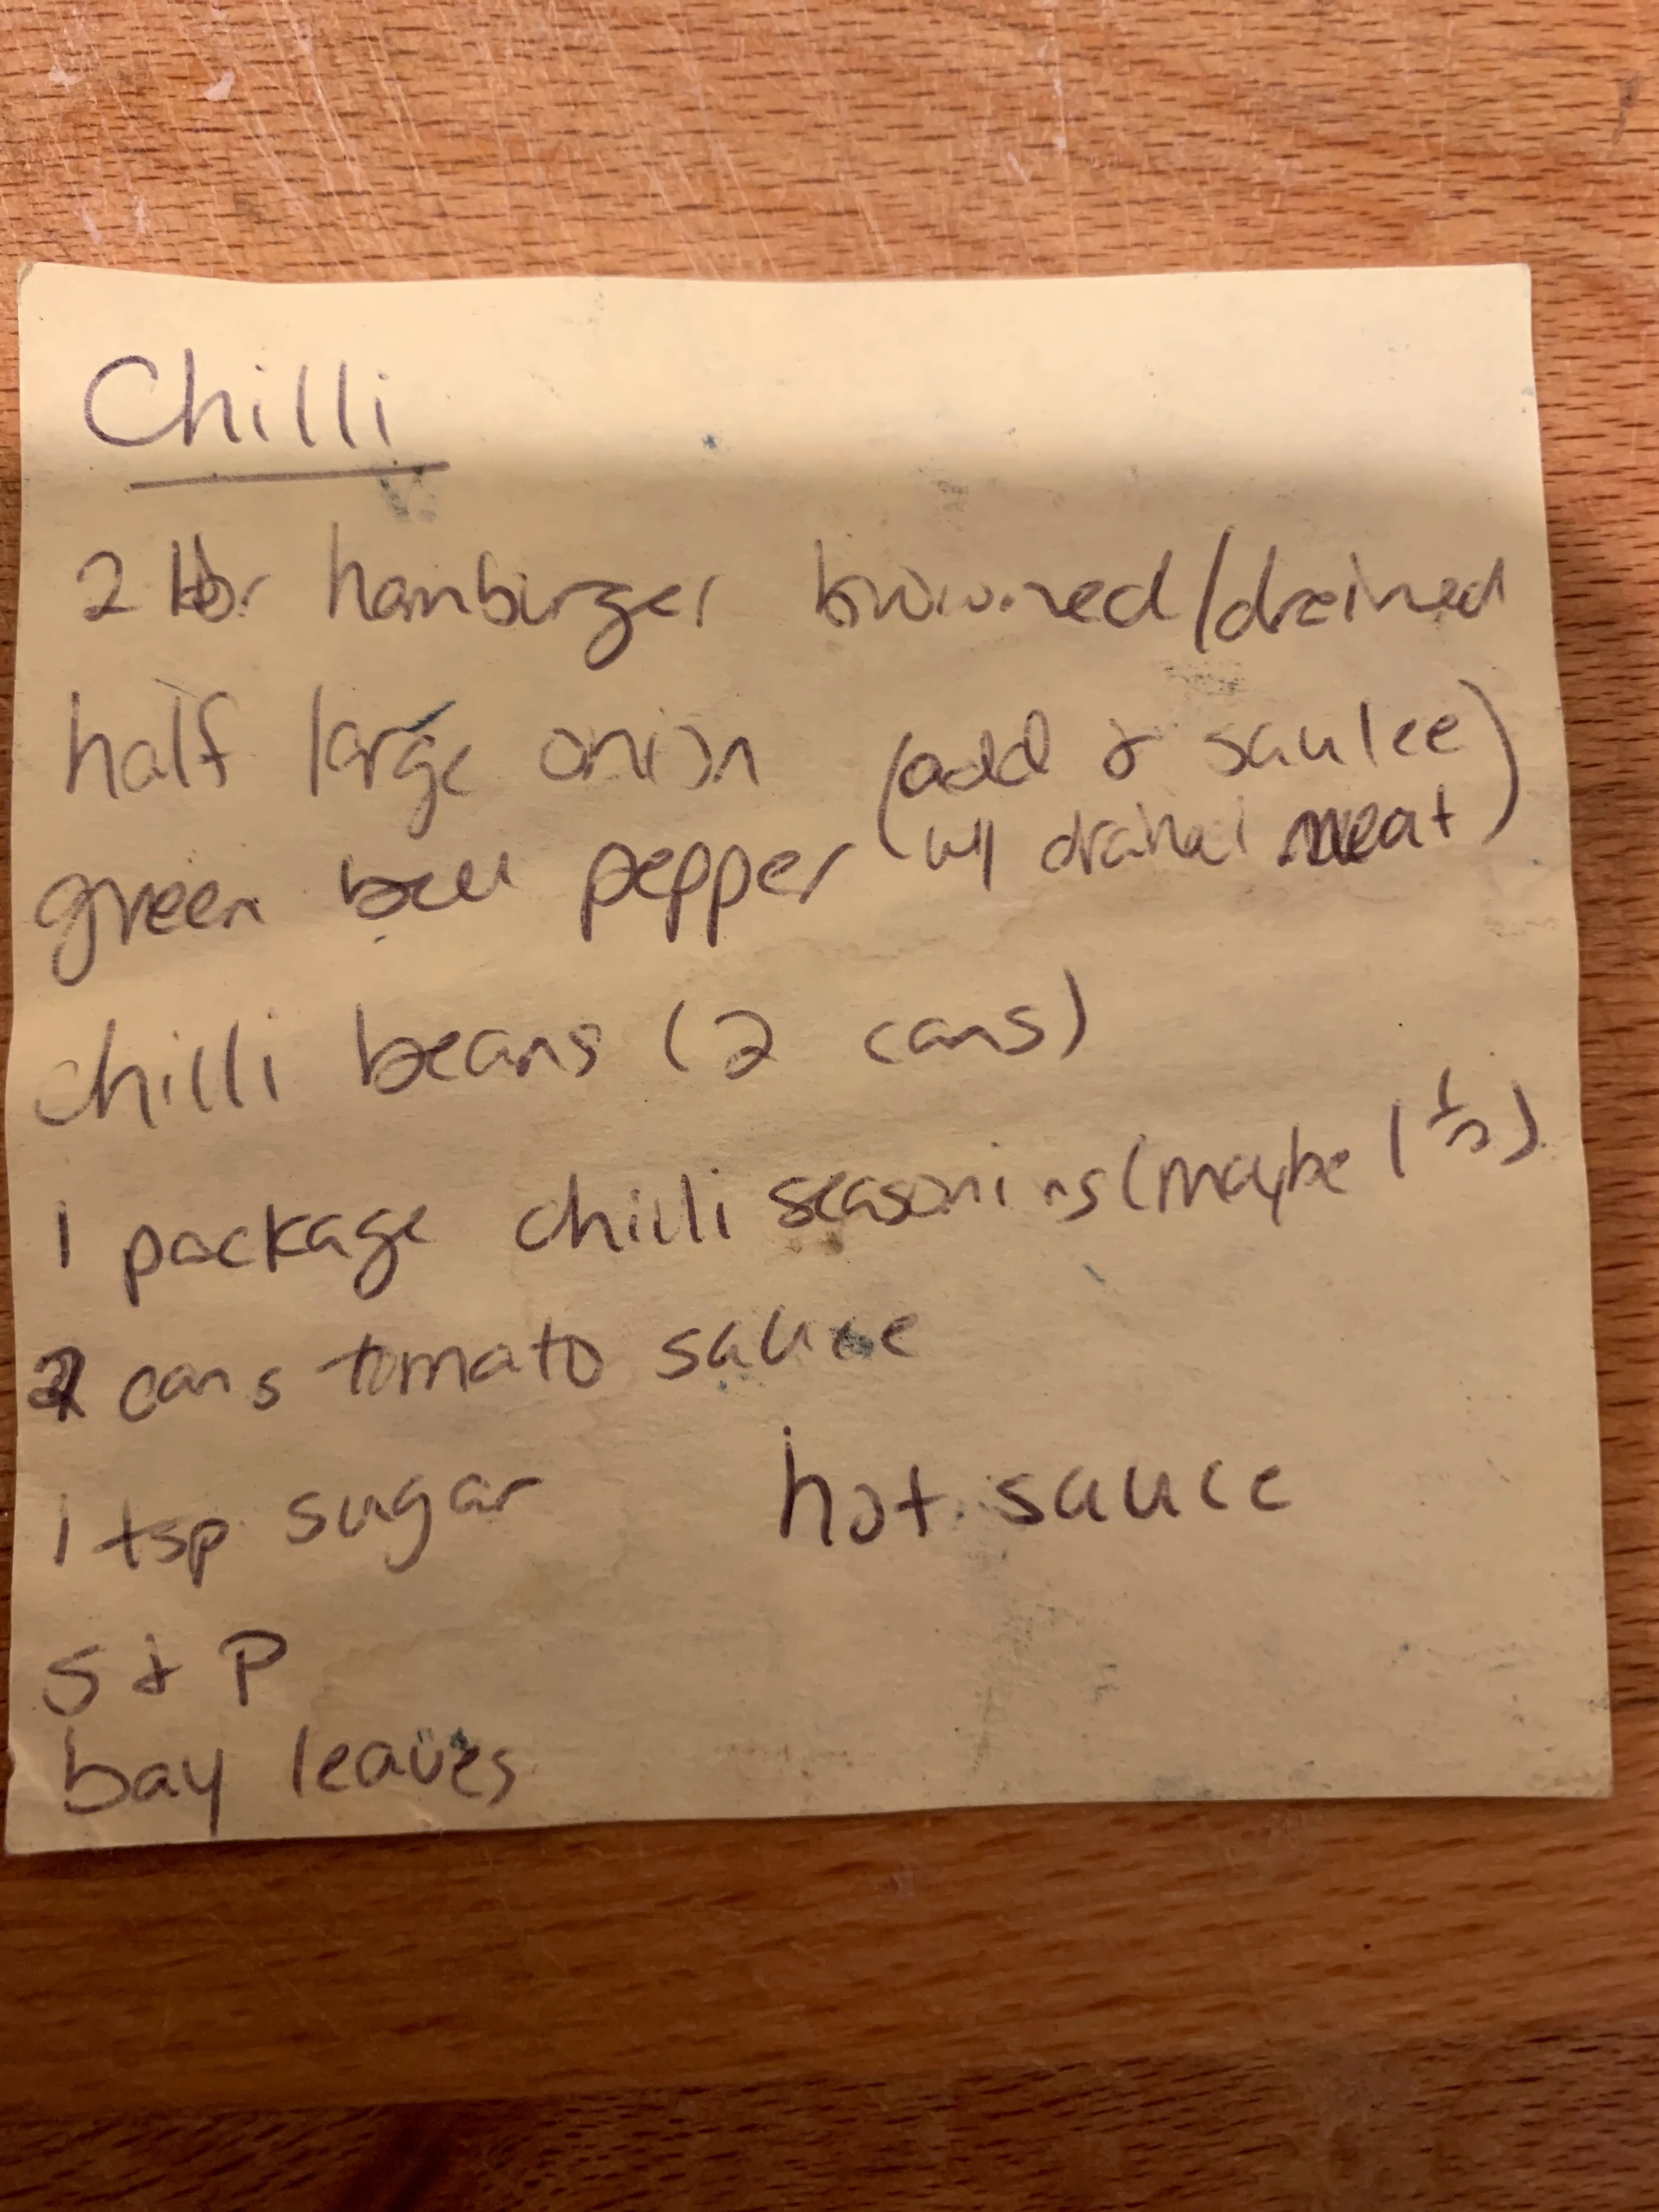 Chilli
2 lbs hamburger browned/drained
half large onion (add & sautee
green bell pepper w/ drained meat)
chilli beans (2 cans)
1 package chilli seasoning (maybe 1 1/2)
2 cans tomato sauce
1 tsp sugar hot sauce
S & P
bay leaves